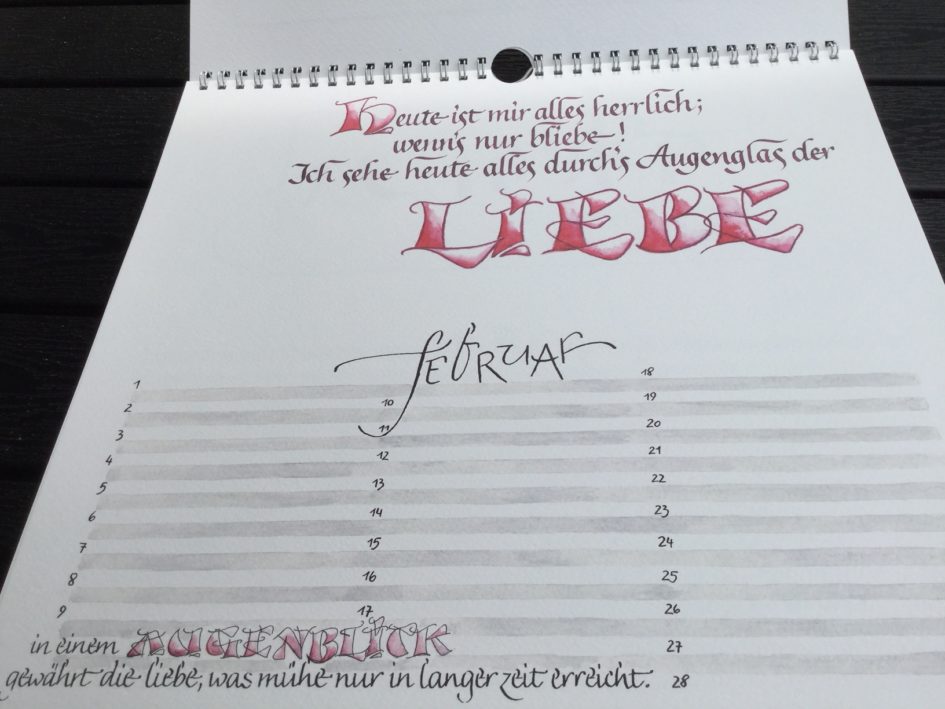 Heute ist mir alles herrlich;
wenn's nur bliebe!
Ich sehe heute alles durch's Augenglas der
LiEBE
februar
1
2
3
4
5
6
7
8
9
10
11
12
13
14
15
16
17
18
19
20
21
22
23
24
25
26
27
28
in einem AUGENBLICK
gewährt die liebe, was mühe nur in langer zeit erreicht.